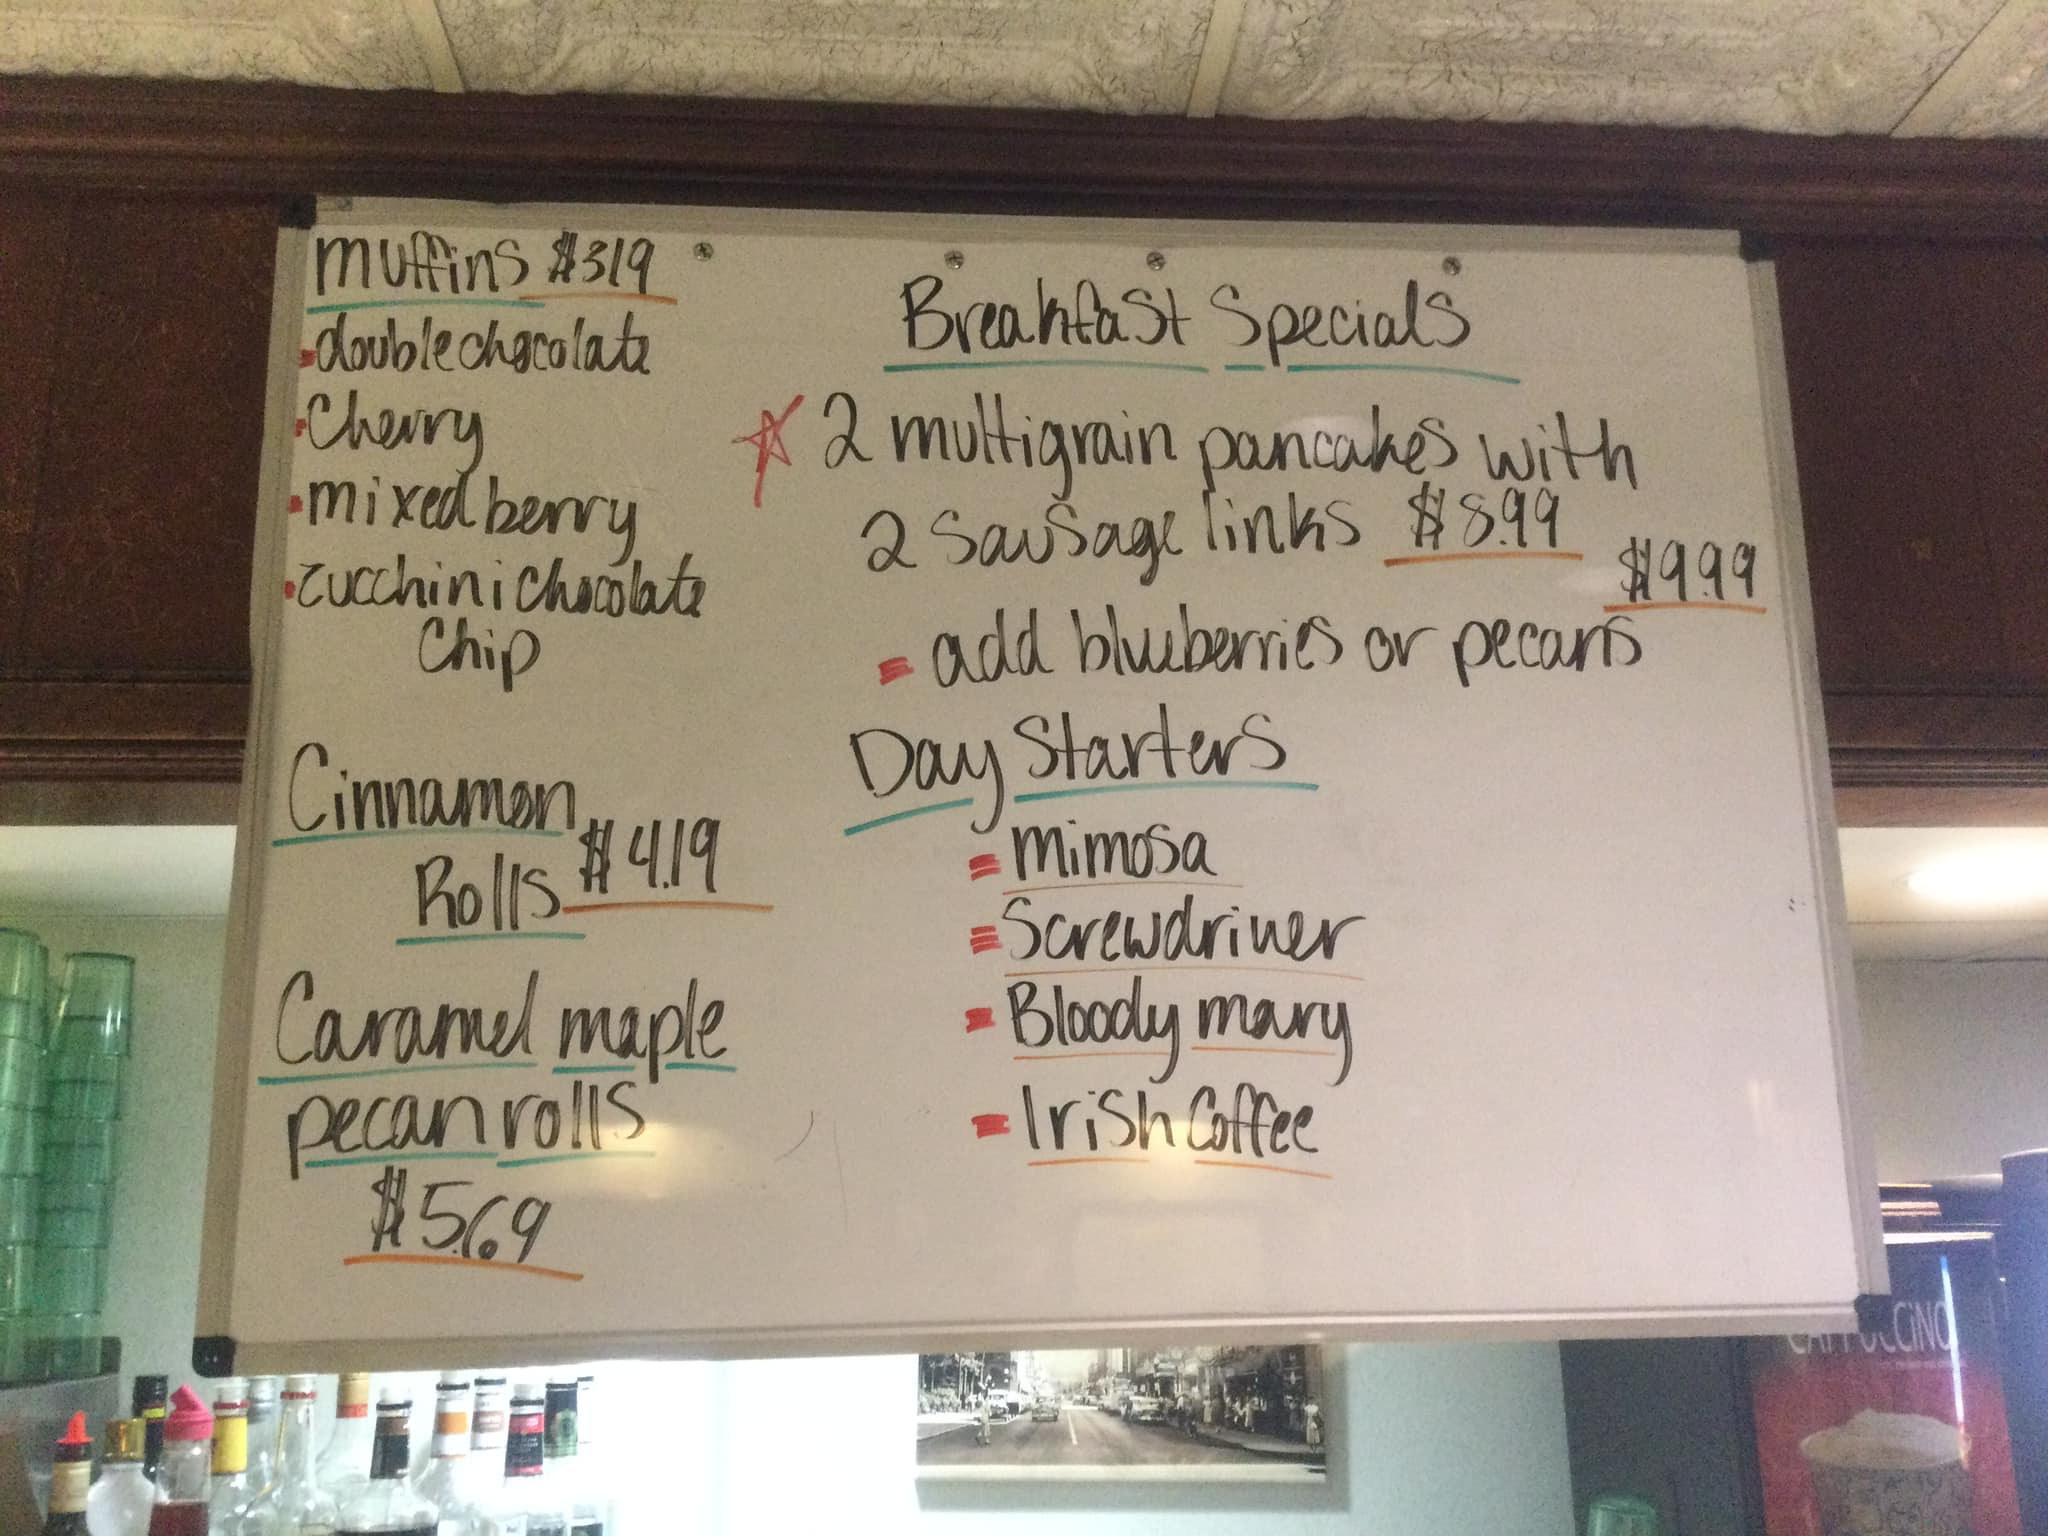 muffins $319
double chocolate
Cherry
mixed berry
zucchini chocolate
Chip
Cinnamon
Rolls $4.19
Caramel maple
pecan rolls
$5.69
Breakfast Specials
2 multigrain pancakes with
2 sausage links $8.99
$9.99
add blueberries or pecans
Day Starters
mimosa
Screwdriver
Bloody mary
Irish Coffee
CAPPUCCiNO